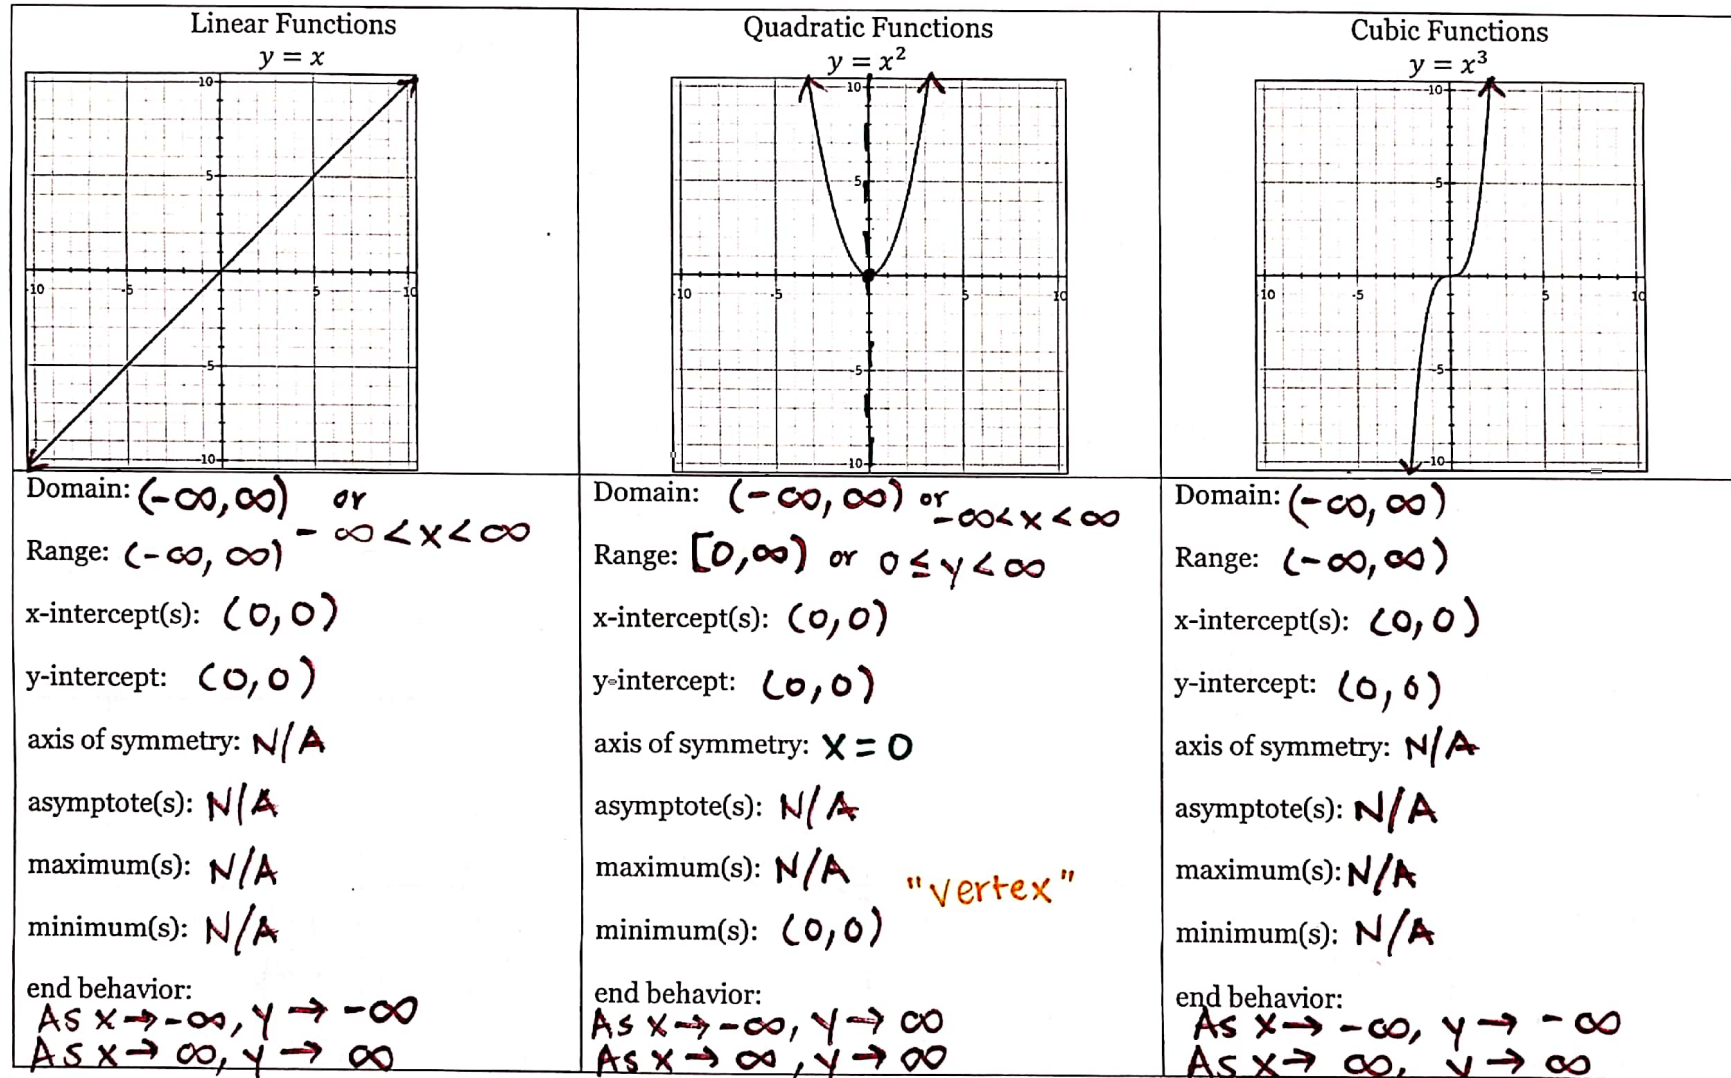 Linear Functions
y = x
10
5
-10
-5
5
10
-5
-10
Domain: (-∞,∞) or
-∞<x<∞
Range: (-∞,∞)
x-intercept(s): (0,0)
y-intercept: (0,0)
axis of symmetry: N/A
asymptote(s): N/A
maximum(s): N/A
minimum(s): N/A
end behavior:
As x→-∞, y→ -∞
As x→ ∞, y→ ∞
Quadratic Functions
y = x²
10
5
10
-5
5
10
-5
-10
Domain: (-∞,∞) or
-∞<x<∞
Range: [0,∞) or 0≤y<∞
x-intercept(s): (0,0)
y-intercept: (0,0)
axis of symmetry: x=0
asymptote(s): N/A
maximum(s): N/A
"vertex"
minimum(s): (0,0)
end behavior:
As x→-∞, y→ ∞
As x→ ∞, y→ ∞
Cubic Functions
y = x³
10
5
10
-5
5
10
-5
-10
Domain: (-∞,∞)
Range: (-∞,∞)
x-intercept(s): (0,0)
y-intercept: (0,0)
axis of symmetry: N/A
asymptote(s): N/A
maximum(s): N/A
minimum(s): N/A
end behavior:
As x→ -∞, y→ -∞
As x→ ∞, y→ ∞